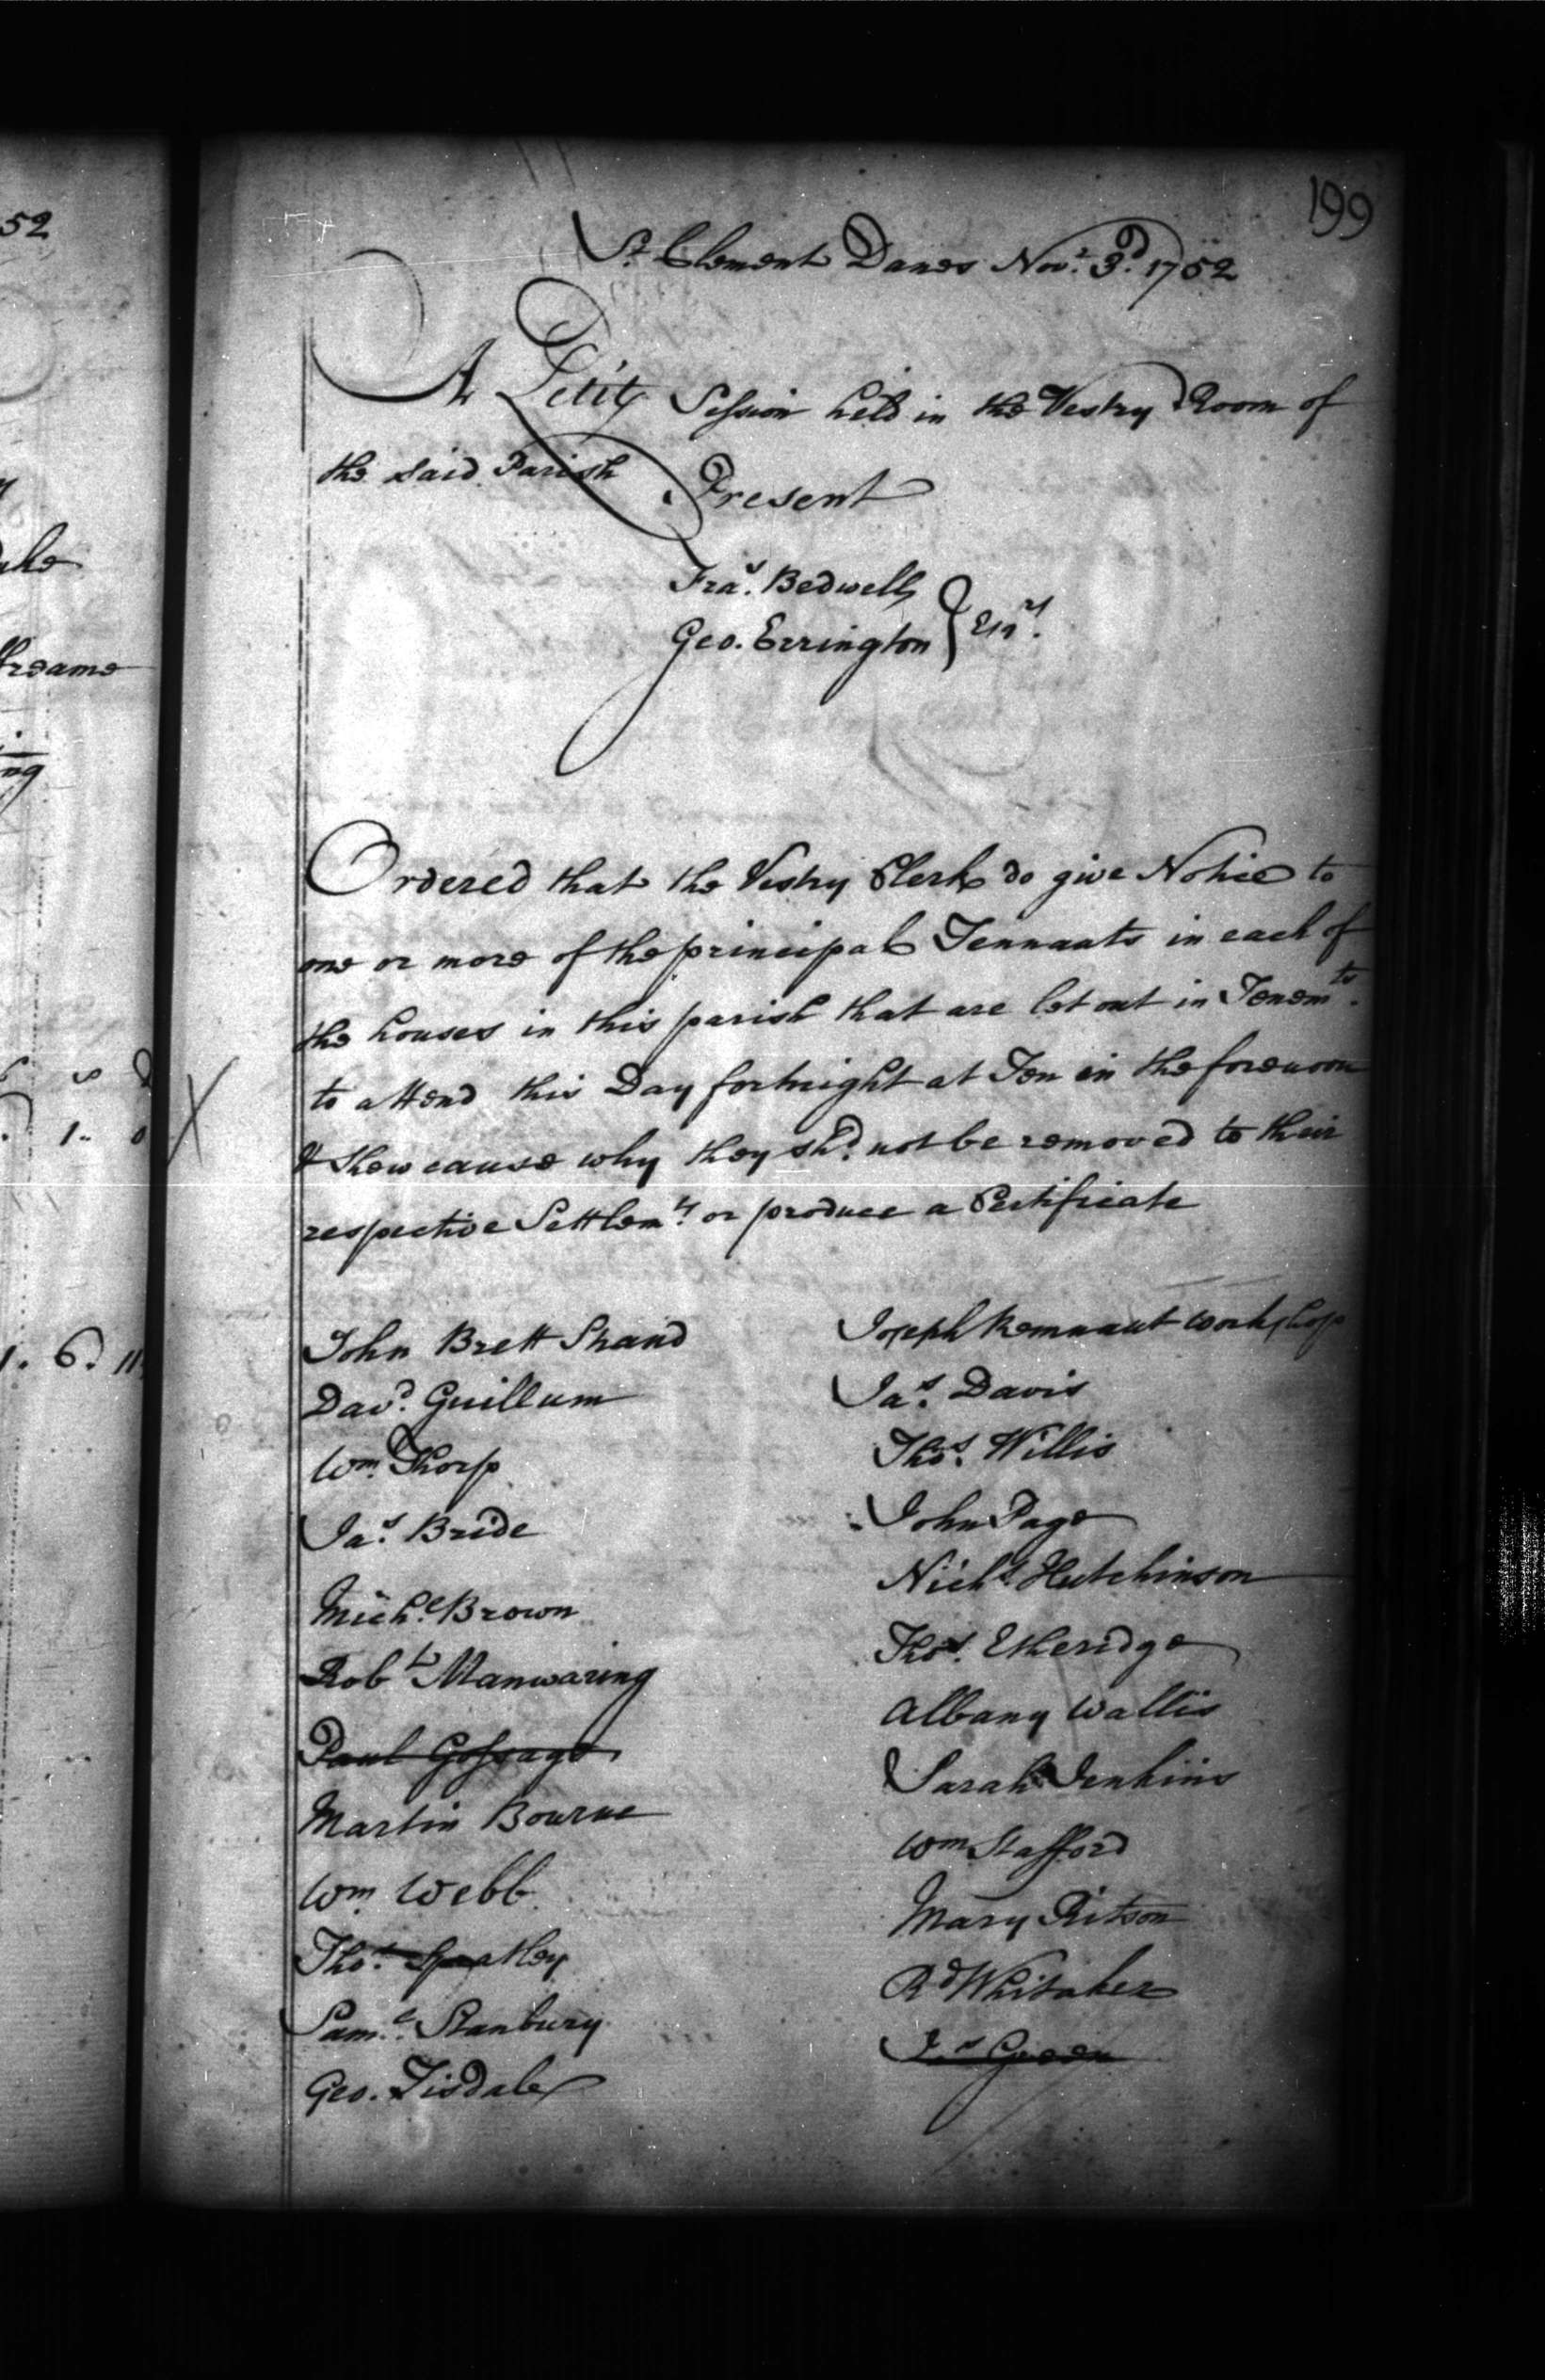 199
St. Clement Danes Novr. 3d. 1752
At Petit Session held in the Vestry Room of
the said Parish
Present
Fras. Bedwell
Geo. Errington } Esqrs.
Ordered that the Vestry Clerk do give Notice to
one or more of the principal Tennants in each of
the houses in this parish that are let out in Tenemts.
to attend this Day fortnight at Ten in the forenoon
& shew cause why they shd. not be removed to their
respective Settlemts. or produce a Certificate
John Brett Strand
Davd. Guillum
Wm. Thorp
Jas. Bride
Michl. Brown
Robt. Manwaring
Paul Gossage
Martin Bourne
Wm. Webb
Thos. Spratley
Saml. Stanbury
Geo. Tisdale
Joseph Remnant workshop
Jas. Davis
Thos. Willis
John Page
Nichs. Hutchinson
Thos. Etheridge
Albany Wallis
Sarah Jenkins
Wm Stafford
Mary Ritson
Rd Whitaker
Js Green
52
ake
ng
1. 0
1. 6. 11